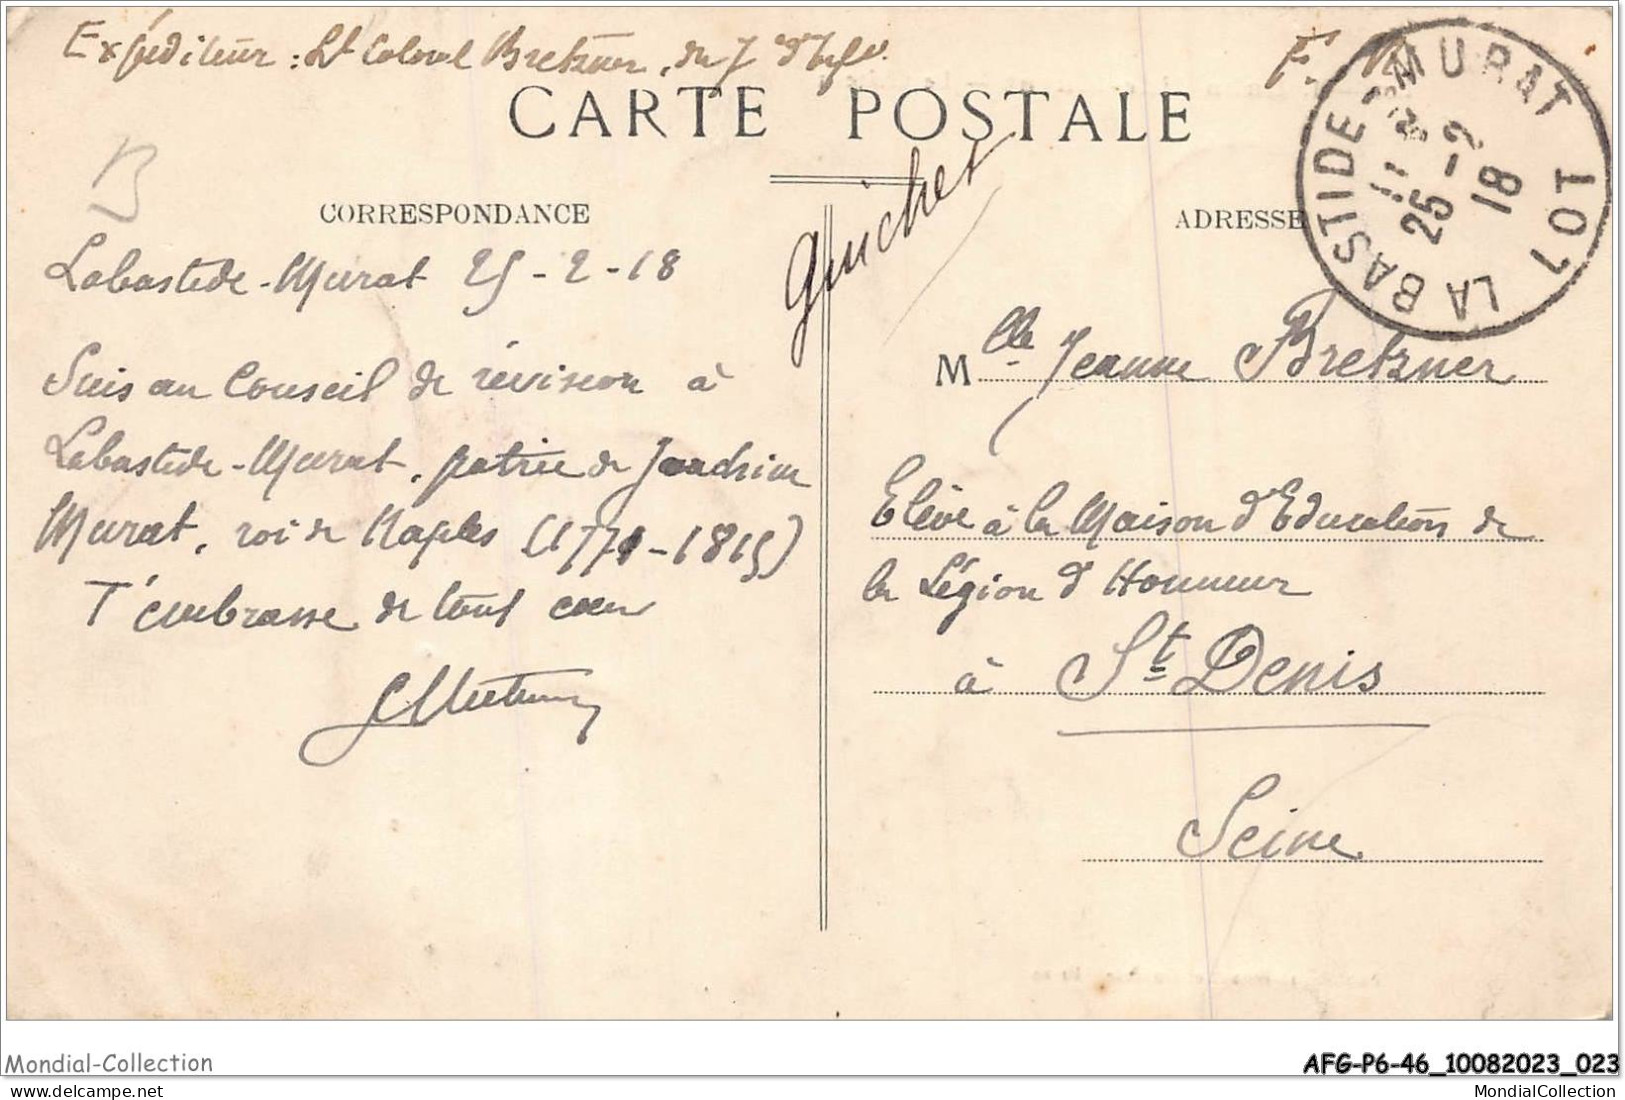 Expéditeur : Lt Colonel Bretzner, du 7e d'Infie
F. M
CARTE POSTALE
guichet
CORRESPONDANCE
Labastide-Murat 25-2-18
Suis au Conseil de révision à
Labastide-Murat, patrie de Joachim
Murat, roi de Naples (1771-1815)
T'embrasse de tout cœur
ADRESSE
LA BASTIDE MURAT LOT
25-2
18
Mlle Jeanne Bretzner
Elève à la Maison d'Education de
la Légion d'Honneur
à St Denis
Seine
Mondial-Collection
AFG-P6-46_10082023_023
www.delcampe.net
MondialCollection